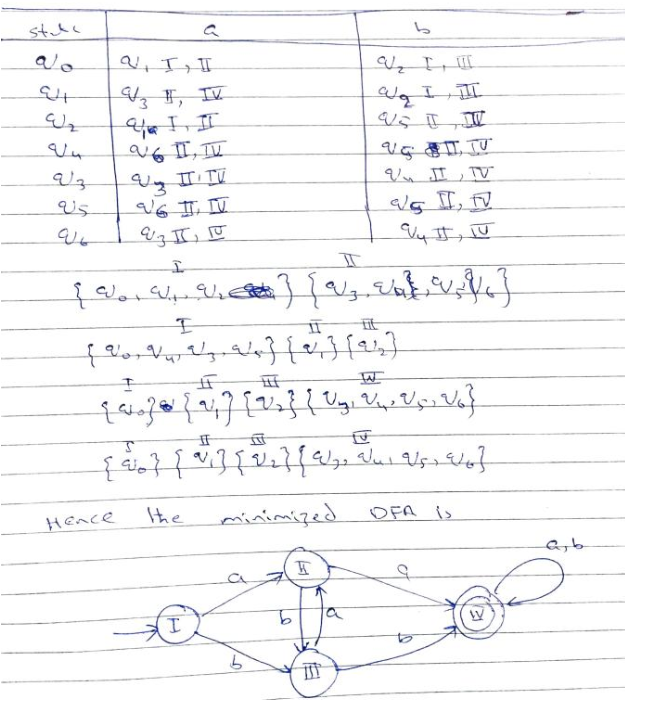 state a b
q0 q1 I, II q2 I, III
q1 q3 II, IV q2 I, III
q2 q1 I, II q5 II, IV
q4 q6 II, IV q5 II, IV
q3 q3 II, IV q4 II, IV
q5 q6 II, IV q5 II, IV
q6 q3 II, IV q4 II, IV
I II
{q0, q1, q2} {q3, q4, q5, q6}
I II III
{q0, q4, q3, q5} {q1} {q2}
I II III IV
{q0} {q1} {q2} {q3, q4, q5, q6}
I II III IV
{q0} {q1} {q2} {q3, q4, q5, q6}
Hence the minimized DFA is
a, b
II a
a
I b a IV
b b
III